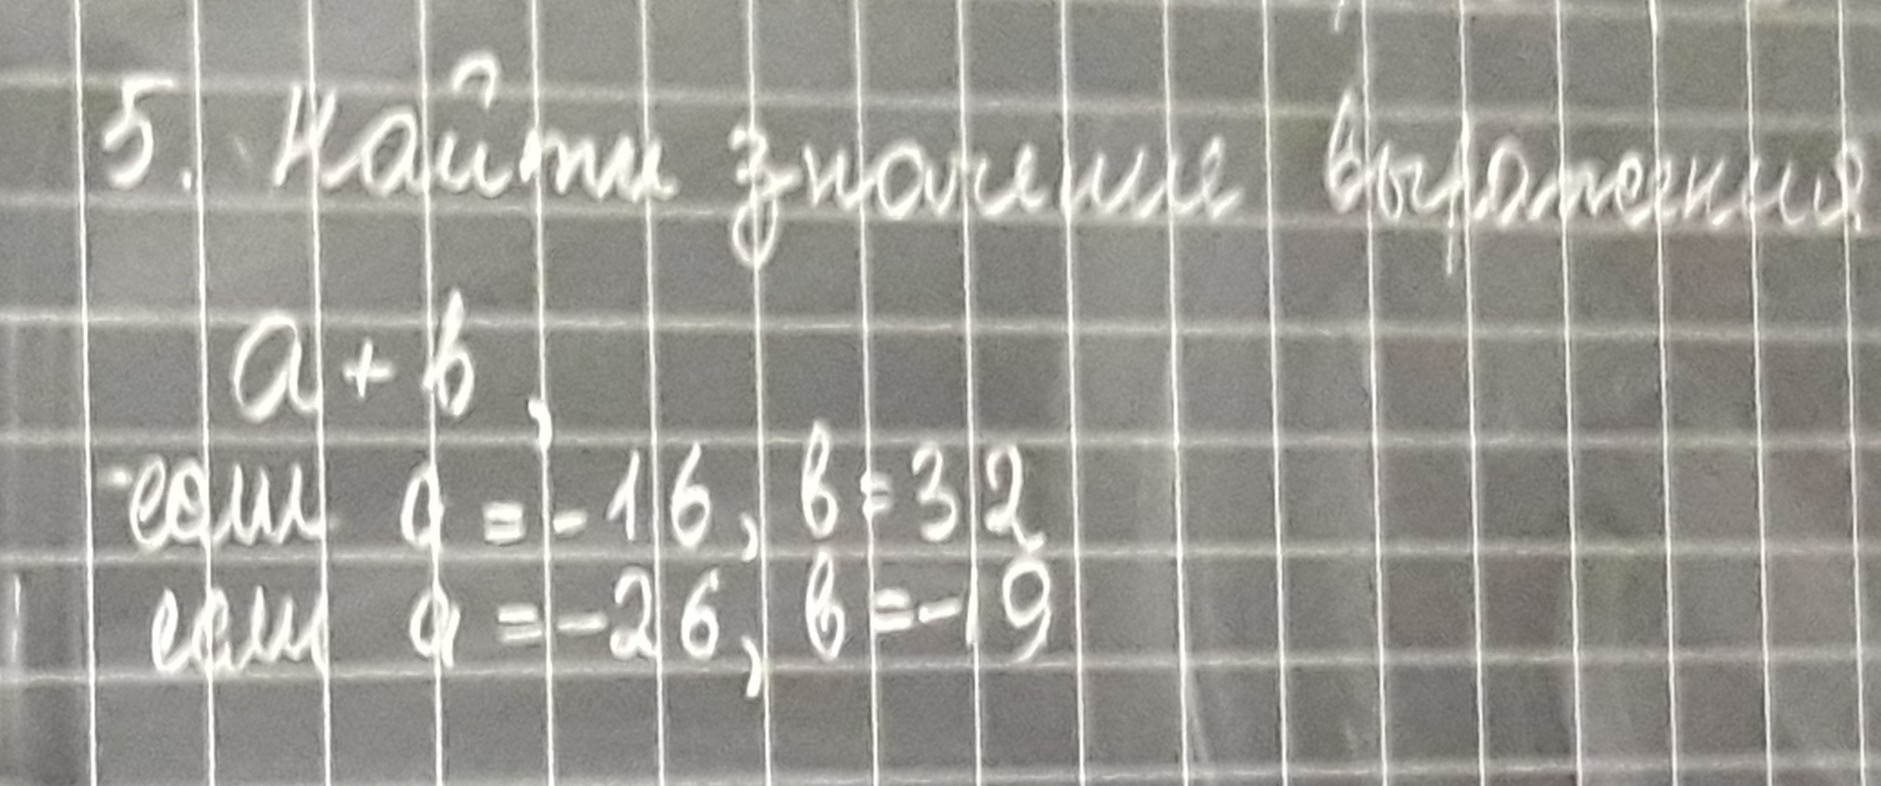 5. Найти значение выражения
a + b,
если a = -16, b = 32
если a = -26, b = -19